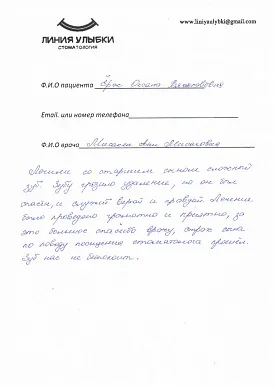 www.liniyaulybki@gmail.com
ЛИНИЯ УЛЫБКИ
СТОМАТОЛОГИЯ
Ф.И.О пациента Оксана
Email. или номер телефона
Ф.И.О врача
Лечили со старшим сыном сложный
зуб. Зубу грозило удаление, но он был
спасен, и служит верой и правдой. Лечение
было проведено грамотно и приятно, за
это большое спасибо врачу, страх сына
по поводу посещение стоматолога прошёл.
Зуб нас не беспокоит.